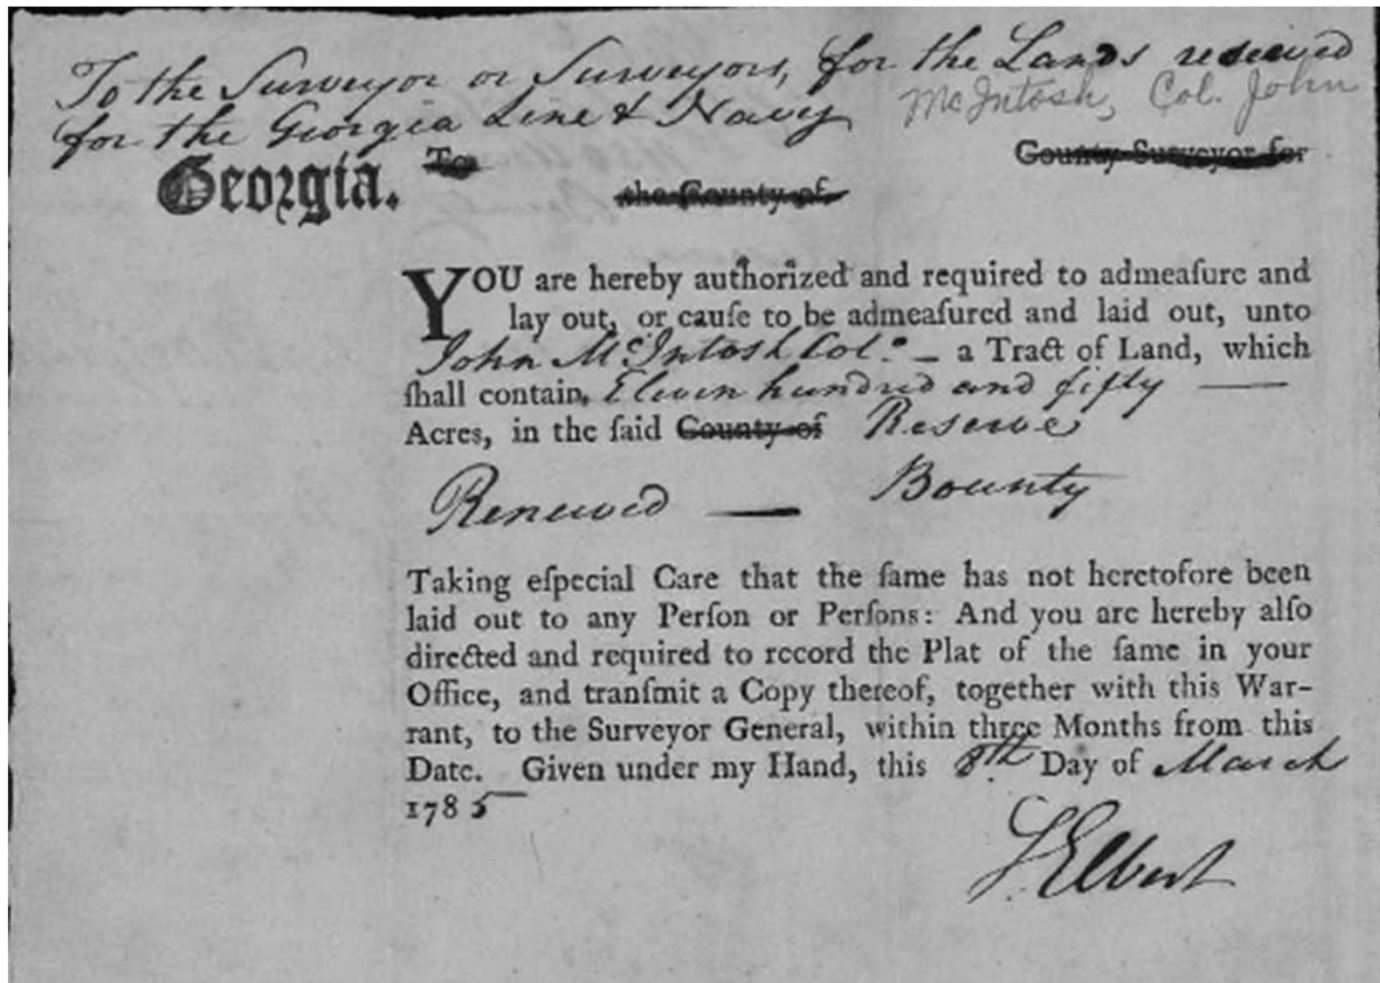 To the Surveyor or Surveyors, for the Lands reserved
McIntosh, Col. John
for the Georgia Line & Navy
Georgia. To County Surveyor for
the County of
YOU are hereby authorized and required to admeaſure and
lay out, or cauſe to be admeaſured and laid out, unto
John McIntosh Colo. — a Tract of Land, which
ſhall contain, Eleven hundred and fifty —
Acres, in the ſaid County of Reserve
Renewed — Bounty
Taking eſpecial Care that the ſame has not heretofore been
laid out to any Perſon or Perſons: And you are hereby alſo
directed and required to record the Plat of the ſame in your
Office, and tranſmit a Copy thereof, together with this War-
rant, to the Surveyor General, within three Months from this
Date. Given under my Hand, this 8th Day of March
1785
S. Elbert